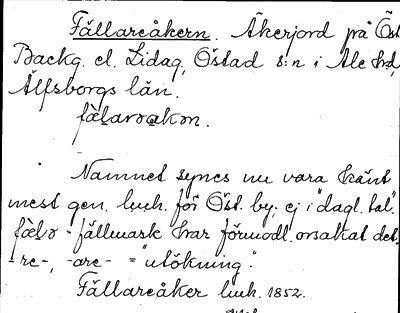 Fällareåkern. Åkerjord på Öst
Backg. el. Lidag, Östad s:n i Ale hd,
Älfsborgs län.
fälarəakən.
Namnet synes nu vara känt
mest gen. lmh. för Öst. by; ej i "dagl. tal".
fälə - fällmask har förmodl. orsakat det.
-re-, -are- = "utökning".
Fällareåker lmh. 1852.